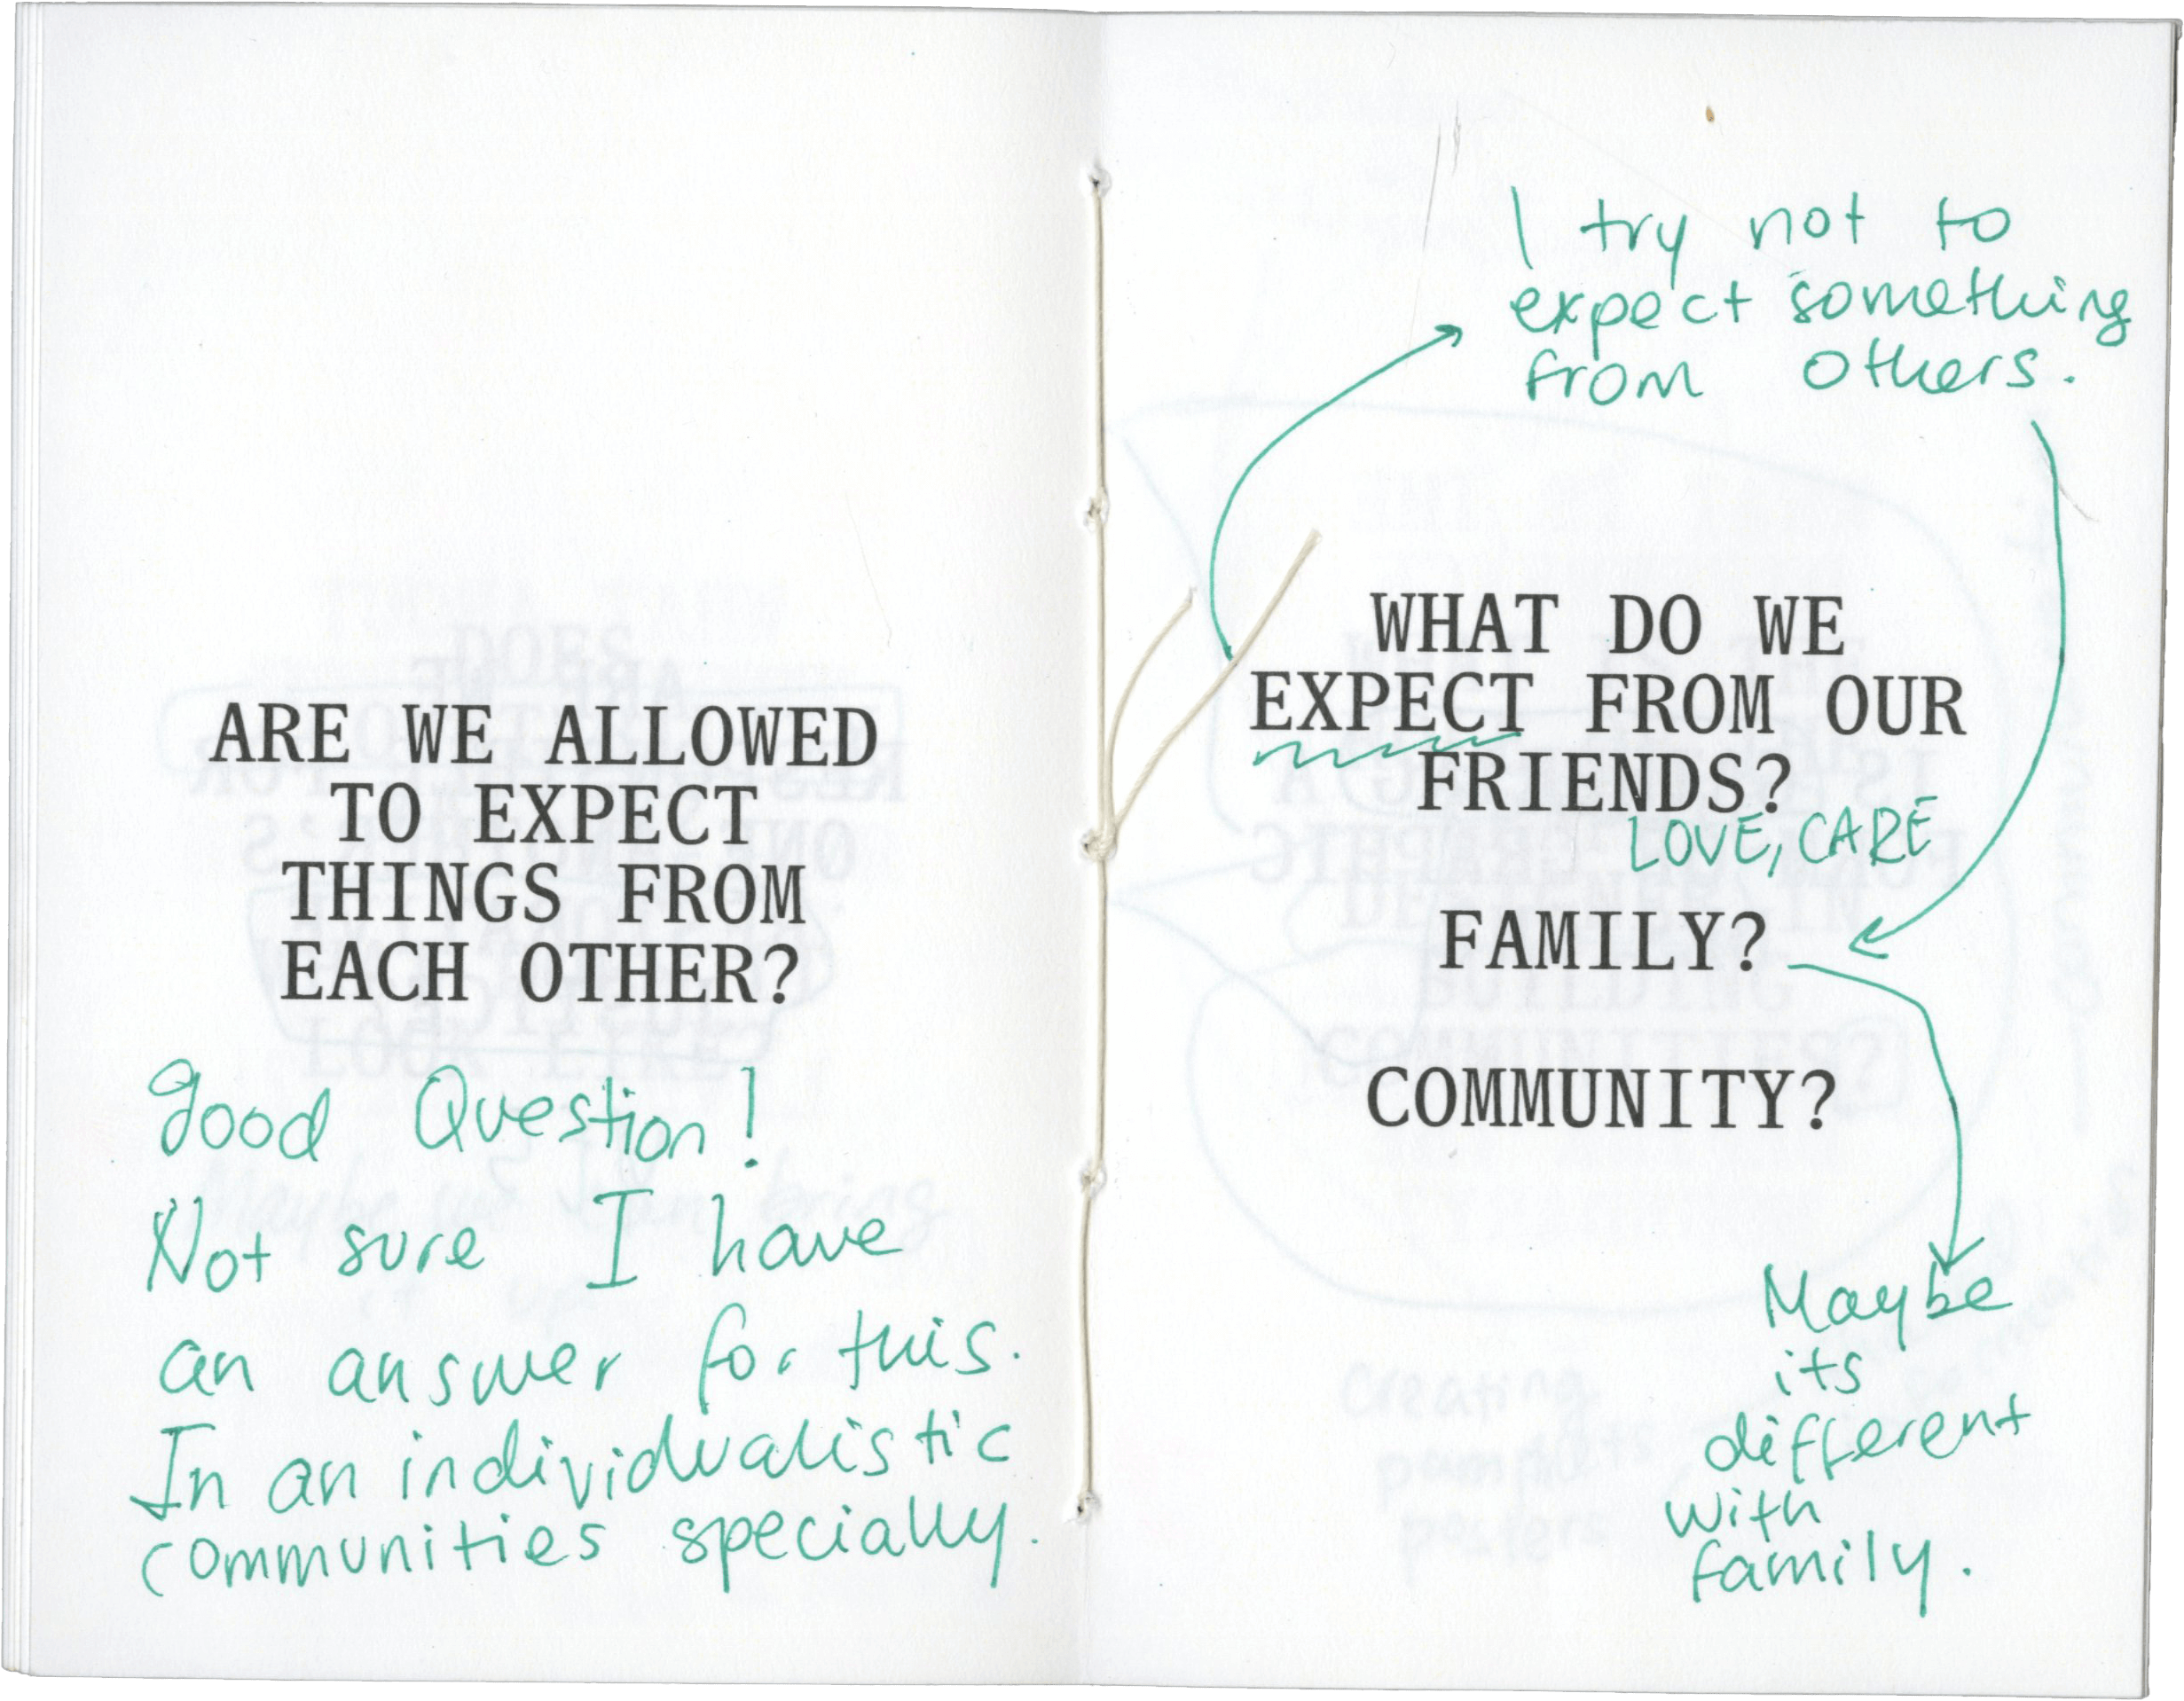 ARE WE ALLOWED
TO EXPECT
THINGS FROM
EACH OTHER?
good Question!
Not sure I have
an answer for this.
In an individualistic
communities specially.
I try not to
expect something
from others.
WHAT DO WE
EXPECT FROM OUR
FRIENDS?
LOVE, CARE
FAMILY?
COMMUNITY?
Maybe
its
different
with
family.